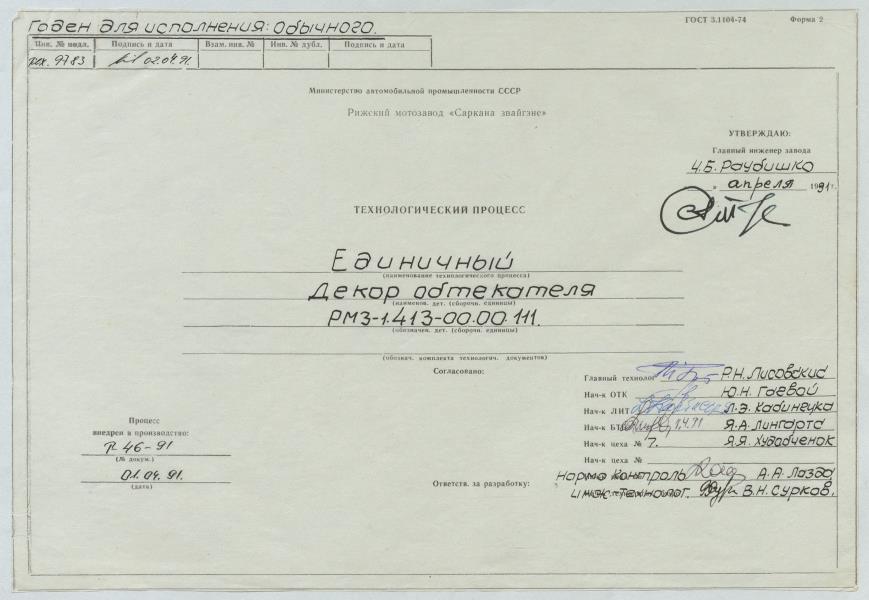 Годен для исполнения: Обычного.
ГОСТ 3.1104-74 Форма 2
Инв. № подл. Подпись и дата Взам. инв. № Инв. № дубл. Подпись и дата
9783 02.04.91.
Министерство автомобильной промышленности СССР
Рижский мотозавод «Саркана звайгзне»
УТВЕРЖДАЮ:
Главный инженер завода
Ч.Б. Раубишко
„ апреля 1991 г.
ТЕХНОЛОГИЧЕСКИЙ ПРОЦЕСС
Единичный
(наименование технологического процесса)
Декор обтекателя
(наименов. дет. (сборочн. единицы)
РМЗ-1.413-00.00.111.
(обозначен. дет. (сборочн. единицы)
(обознач. комплекта технологич. документов)
Согласовано:
Главный технолог Р.Н. Лисовский
Нач-к ОТК Ю.Н. Гаевой
Нач-к ЛИТ Л.Э.
Нач-к 1.4.91 Я.А. Лингарта
Нач-к цеха № 7. Я.Я. Худабченок
Нач-к цеха №
Процесс
внедрен в производство:
46-91
(№ докум.)
01.04.91.
(дата)
Ответств. за разработку:
Нормо контроль А.А. Лазда
инж. технолог. В.Н. Сурков.